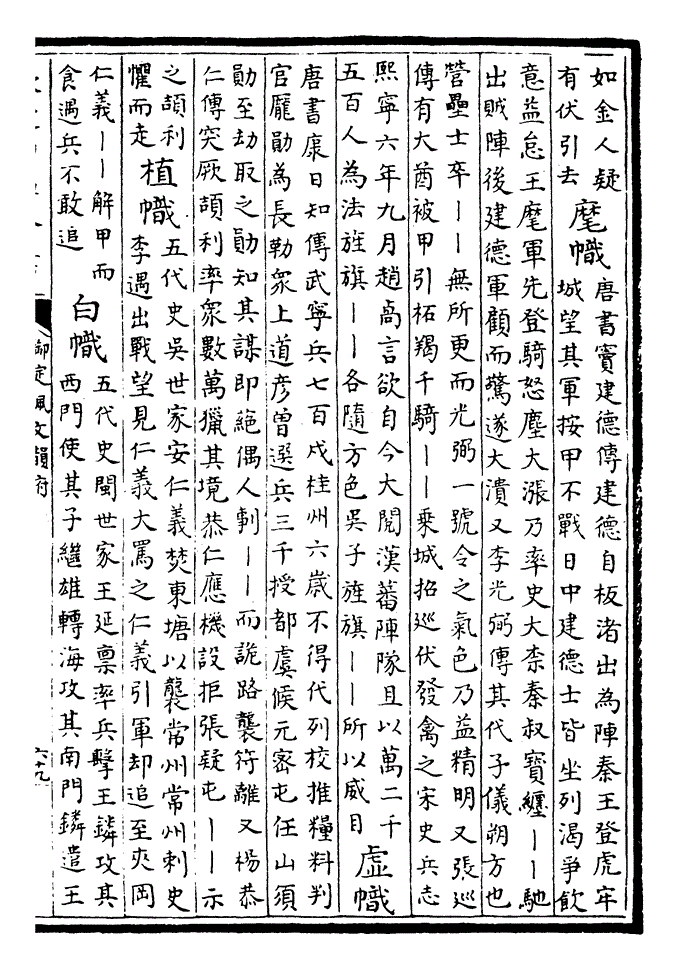 如金人疑
有伏引去
麾幟
唐書竇建德傳建德自板渚出為陣秦王登虎牢
城望其軍按甲不戰日中建德士皆坐列渴爭飲
意益怠王麾軍先登騎怒塵大漲乃率史大柰秦叔寶纏丨丨馳
出賊陣後建德軍顧而驚遂大潰又李光弼傳其代子儀朔方也
營壘士卒丨丨無所更而光弼一號令之氣色乃益精明又張巡
傳有大酋被甲引柘羯千騎丨丨乗城招巡伏發禽之宋史兵志
熙寧六年九月趙卨言欲自今大閱漢蕃陣隊且以萬二千
五百人為法旌旗丨丨各隨方色吳子旌旗丨丨所以威目
虚幟
唐書康日知傳武寧兵七百戍桂州六歲不得代列校推糧料判
官龐勛為長勒衆上道彦曽選兵三千授都虞候元宻屯任山須
勛至劫取之勛知其謀即絶偶人剚丨丨而詭路襲符離又楊恭
仁傳突厥頡利率衆數萬獵其境恭仁應機設拒張疑屯丨丨示
之頡利
懼而走
植幟
五代史吳世家安仁義焚東塘以襲常州常州刺史
李遇出戰望見仁義大罵之仁義引軍却追至夾岡
仁義丨丨解甲而
食遇兵不敢追
白幟
五代史閩世家王延禀率兵擊王鏻攻其
西門使其子繼雄轉海攻其南門鏻遣王
御定佩文韻府
六十九